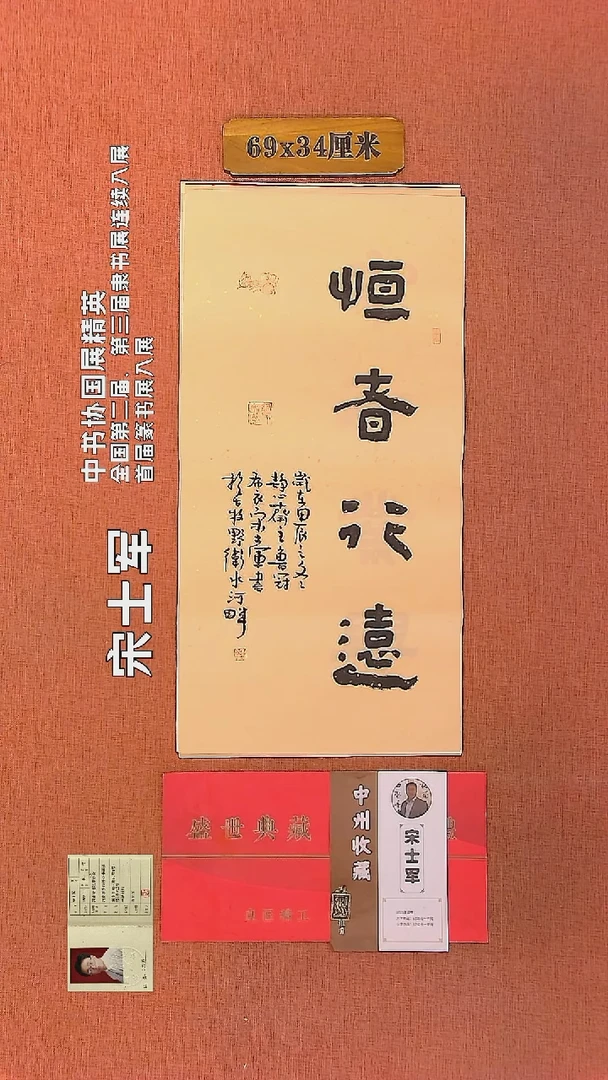 69x34厘米
中书协国展精英
全国第二届、第三届隶书展连续入展
首届篆书展入展
宋士军
恒者行遠
歲在甲辰之冬
静心齋主魯冠
布衣宋士軍書
於古牧野衛水河畔
盛世典藏
中州收藏
宋士军